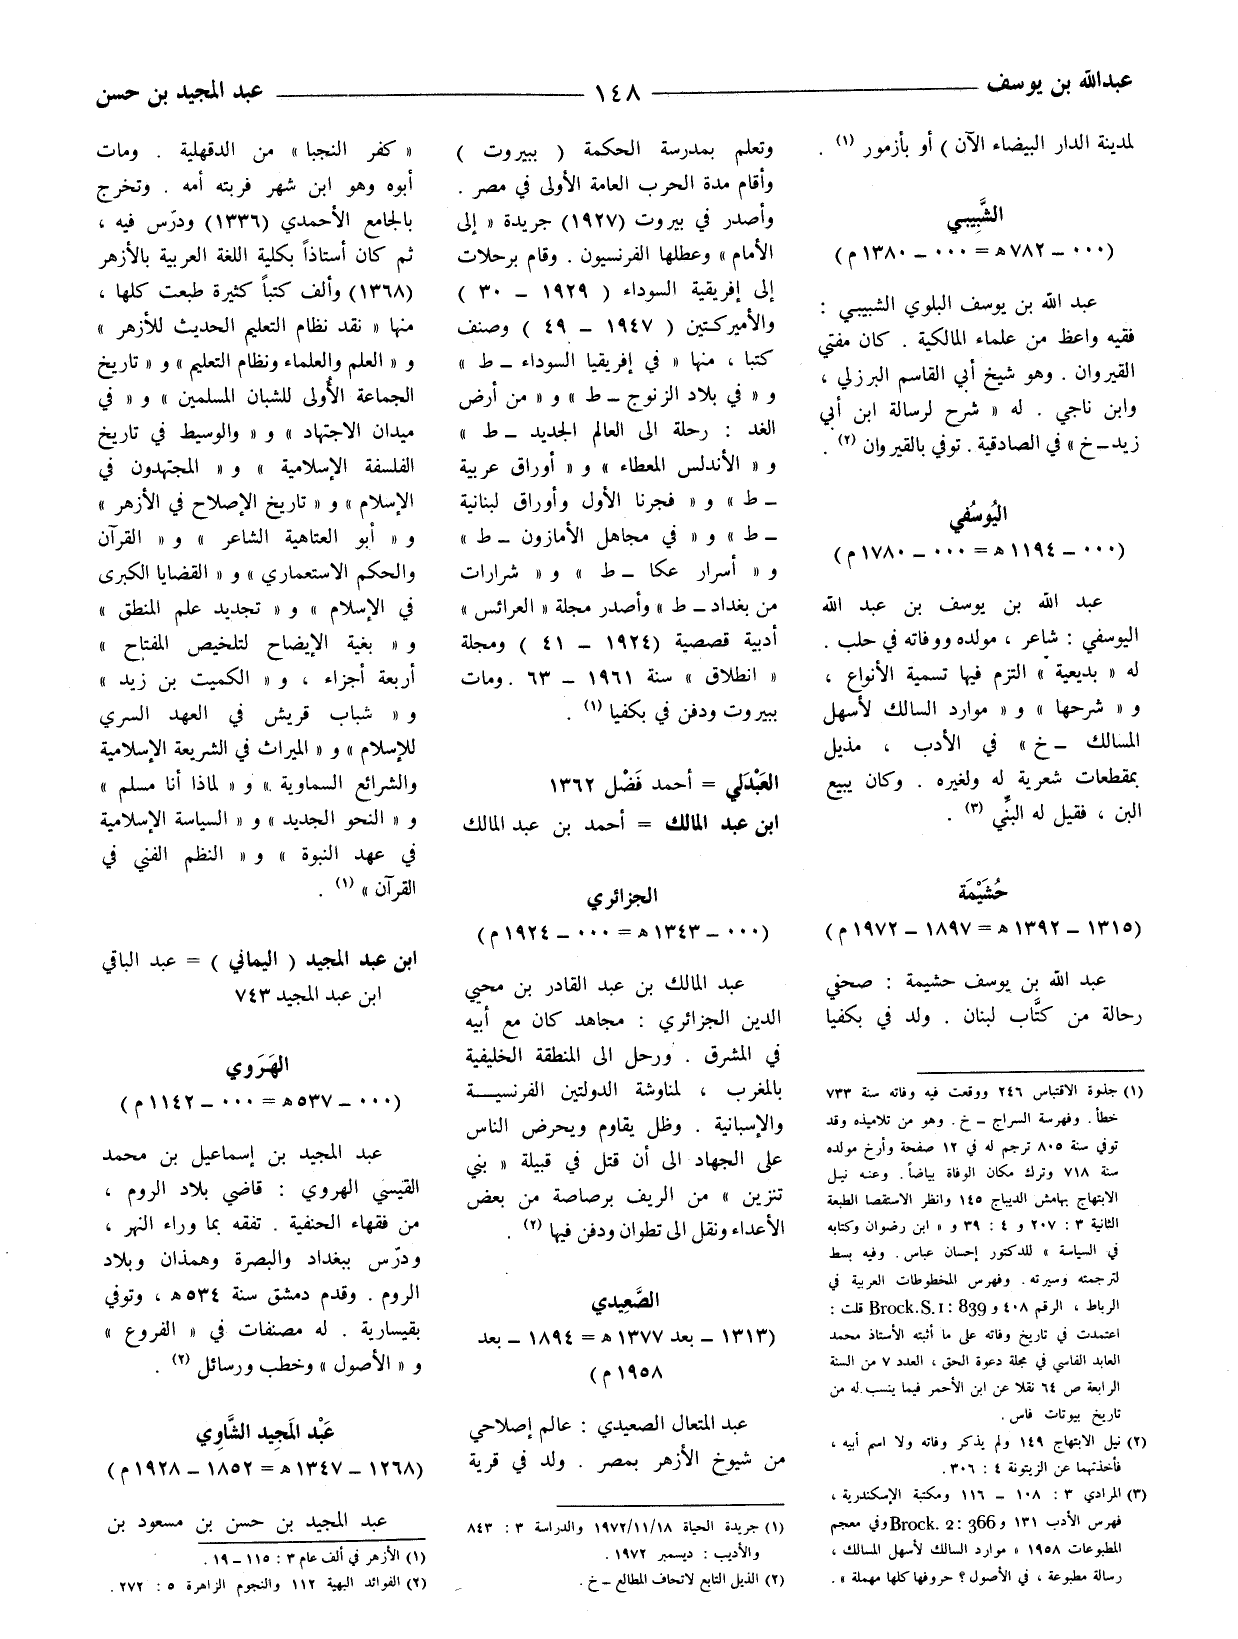 عبدالله بن يوسف
١٤٨
عبد المجيد بن حسن
لمدينة الدار البيضاء الآن ) أو بأزمور (١) .
الشَّبِيبي
(٠٠٠ – ٧٨٢ ه = ٠٠٠ – ١٣٨٠ م)
عبد الله بن يوسف البلوي الشبيبي :
فقيه واعظ من علماء المالكية . كان مفتي
القيروان . وهو شيخ أبي القاسم البرزلي ،
وابن ناجي . له « شرح لرسالة ابن أبي
زيد – خ » في الصادقية . توفي بالقيروان (٢) .
اليُوسُفي
(٠٠٠ – ١١٩٤ ه = ٠٠٠ – ١٧٨٠ م)
عبد الله بن يوسف بن عبد الله
اليوسفي : شاعر ، مولده ووفاته في حلب .
له « بديعية » التزم فيها تسمية الأنواع ،
و « شرحها » و « موارد السالك لأسهل
المسالك – خ » في الأدب ، مذيل
بمقطعات شعرية له ولغيره . وكان يبيع
البن ، فقيل له البنّي (٣) .
حُشَيْمَة
(١٣١٥ – ١٣٩٢ ه = ١٨٩٧ – ١٩٧٢ م)
عبد الله بن يوسف حشيمة : صحفي
رحالة من كتَّاب لبنان . ولد في بكفيا
(١) جذوة الاقتباس ٢٤٦ ووقعت فيه وفاته سنة ٧٣٣
خطأ . وفهرسة السراج – خ . وهو من تلاميذه وقد
توفي سنة ٨٠٥ ترجم له في ١٢ صفحة وأرخ مولده
سنة ٧١٨ وترك مكان الوفاة بياضاً . وعنه نيل
الابتهاج بهامش الديباج ١٤٥ وانظر الاستقصا الطبعة
الثانية ٣ : ٢٠٧ و ٤ : ٣٩ و « ابن رضوان وكتابه
في السياسة » للدكتور إحسان عباس . وفيه بسط
لترجمته وسيرته . وفهرس المخطوطات العربية في
الرباط ، الرقم ٤٠٨ و Brock.S.1: 839 قلت :
اعتمدت في تاريخ وفاته على ما أثبته الأستاذ محمد
العابد الفاسي في مجلة دعوة الحق ، العدد ٧ من السنة
الرابعة ص ٦٤ نقلا عن ابن الأحمر فيما ينسب له من
تاريخ بيوتات فاس .
(٢) نيل الابتهاج ١٤٩ ولم يذكر وفاته ولا اسم أبيه ،
فأخذتهما عن الزيتونة ٤ : ٣٠٦ .
(٣) المرادي ٣ : ١٠٨ – ١١٦ ومكتبة الإسكندرية ،
فهرس الأدب ١٣١ و Brock. 2: 366 وفي معجم
المطبوعات ١٩٥٨ « موارد السالك لأسهل المسالك ،
رسالة مطبوعة ، في الأصول ؟ حروفها كلها مهملة » .
وتعلم بمدرسة الحكمة ( ببيروت )
وأقام مدة الحرب العامة الأولى في مصر .
وأصدر في بيروت (١٩٢٧) جريدة « إلى
الأمام » وعطلها الفرنسيون . وقام برحلات
إلى إفريقية السوداء ( ١٩٢٩ – ٣٠ )
والأميركتين ( ١٩٤٧ – ٤٩ ) وصنف
كتبا ، منها « في إفريقيا السوداء – ط »
و « في بلاد الزنوج – ط » و « من أرض
الغد : رحلة الى العالم الجديد – ط »
و « الأندلس المعطاء » و « أوراق عربية
– ط » و « فجرنا الأول وأوراق لبنانية
– ط » و « في مجاهل الأمازون – ط »
و « أسرار عكا – ط » و « شرارات
من بغداد – ط » وأصدر مجلة « العرائس »
أدبية قصصية (١٩٢٤ – ٤١ ) ومجلة
« انطلاق » سنة ١٩٦١ – ٦٣ . ومات
ببيروت ودفن في بكفيا (١) .
العَبْدَلي = أحمد فَضْل ١٣٦٢
ابن عبد المالك = أحمد بن عبد المالك
الجزائري
(٠٠٠ – ١٣٤٣ ه = ٠٠٠ – ١٩٢٤ م)
عبد المالك بن عبد القادر بن محيي
الدين الجزائري : مجاهد كان مع أبيه
في المشرق . ورحل الى المنطقة الخليفية
بالمغرب ، لمناوشة الدولتين الفرنسيــة
والإسبانية . وظل يقاوم ويحرض الناس
على الجهاد الى أن قتل في قبيلة « بني
تنزين » من الريف برصاصة من بعض
الأعداء ونقل الى تطوان ودفن فيها (٢) .
الصَّعِيدي
(١٣١٣ – بعد ١٣٧٧ ه = ١٨٩٤ – بعد
١٩٥٨ م)
عبد المتعال الصعيدي : عالم إصلاحي
من شيوخ الأزهر بمصر . ولد في قرية
(١) جريدة الحياة ١٩٧٢/١١/١٨ والدراسة ٣ : ٨٤٣
والأديب : ديسمبر ١٩٧٢ .
(٢) الذيل التابع لاتحاف المطالع – خ .
« كفر النجبا » من الدقهلية . ومات
أبوه وهو ابن شهر فربته أمه . وتخرج
بالجامع الأحمدي (١٣٣٦) ودرّس فيه ،
ثم كان أستاذاً بكلية اللغة العربية بالأزهر
(١٣٦٨) وألف كتباً كثيرة طبعت كلها ،
منها « نقد نظام التعليم الحديث للأزهر »
و « العلم والعلماء ونظام التعليم » و « تاريخ
الجماعة الأولى للشبان المسلمين » و « في
ميدان الاجتهاد » و « والوسيط في تاريخ
الفلسفة الإسلامية » و « المجتهدون في
الإسلام » و « تاريخ الإصلاح في الأزهر »
و « أبو العتاهية الشاعر » و « القرآن
والحكم الاستعماري » و « القضايا الكبرى
في الإسلام » و « تجديد علم المنطق »
و « بغية الإيضاح لتلخيص المفتاح »
أربعة أجزاء ، و « الكميت بن زيد »
و « شباب قريش في العهد السري
للإسلام » و « الميراث في الشريعة الإسلامية
والشرائع السماوية » و « لماذا أنا مسلم »
و « النحو الجديد » و « السياسة الإسلامية
في عهد النبوة » و « النظم الفني في
القرآن » (١) .
ابن عبد المجيد ( اليماني ) = عبد الباقي
ابن عبد المجيد ٧٤٣
الهَرَوي
(٠٠٠ – ٥٣٧ ه = ٠٠٠ – ١١٤٢ م)
عبد المجيد بن إسماعيل بن محمد
القيسي الهروي : قاضي بلاد الروم ،
من فقهاء الحنفية . تفقه بما وراء النهر ،
ودرّس ببغداد والبصرة وهمذان وبلاد
الروم . وقدم دمشق سنة ٥٣٤ ه ، وتوفي
بقيسارية . له مصنفات في « الفروع »
و « الأصول » وخطب ورسائل (٢) .
عَبْد المَجِيد الشَّاوِي
(١٢٦٨ – ١٣٤٧ ه = ١٨٥٢ – ١٩٢٨ م)
عبد المجيد بن حسن بن مسعود بن
(١) الأزهر في ألف عام ٣ : ١١٥ – ١٩ .
(٢) الفوائد البهية ١١٢ والنجوم الزاهرة ٥ : ٢٧٢ .